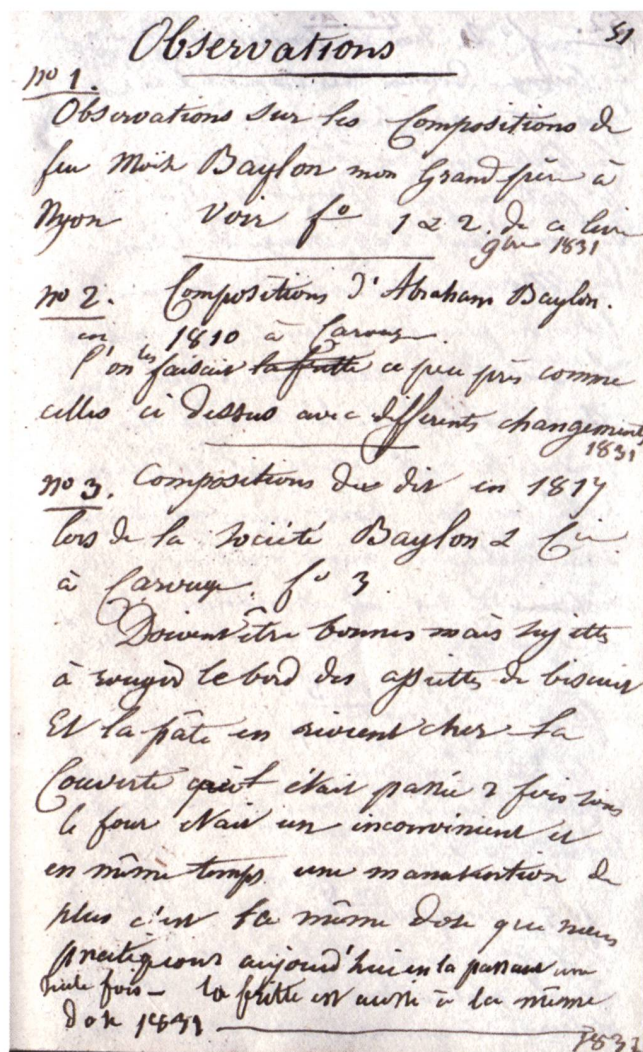 51
Observations
no 1.
Observations sur les Compositions de
feu Moïse Baylon mon Grand père à
Nyon Voir fo 1 & 2. de ce livre
9bre 1831
no 2. Compositions d'Abraham Baylon.
en 1810 à Carouge.
l'on les faisait la fritte a peu près comme
celles ci dessus avec différents changements
1831
no 3. Compositions du dit en 1817
lors de la Société Baylon & Cie
à Carouge. fo 3.
Doivent être bonnes mais sujettes
à rougir le bord des assiettes de biscuit
Et la pâte en revient cher la
Couverte qui était passée 2 fois sous
le four était un inconvénient et
en même temps une manutention de
plus c'est la même dose que nous
pratiquons aujourd'hui en la passant une
seule fois - la fritte est aussi à la même
dose 1831
1831